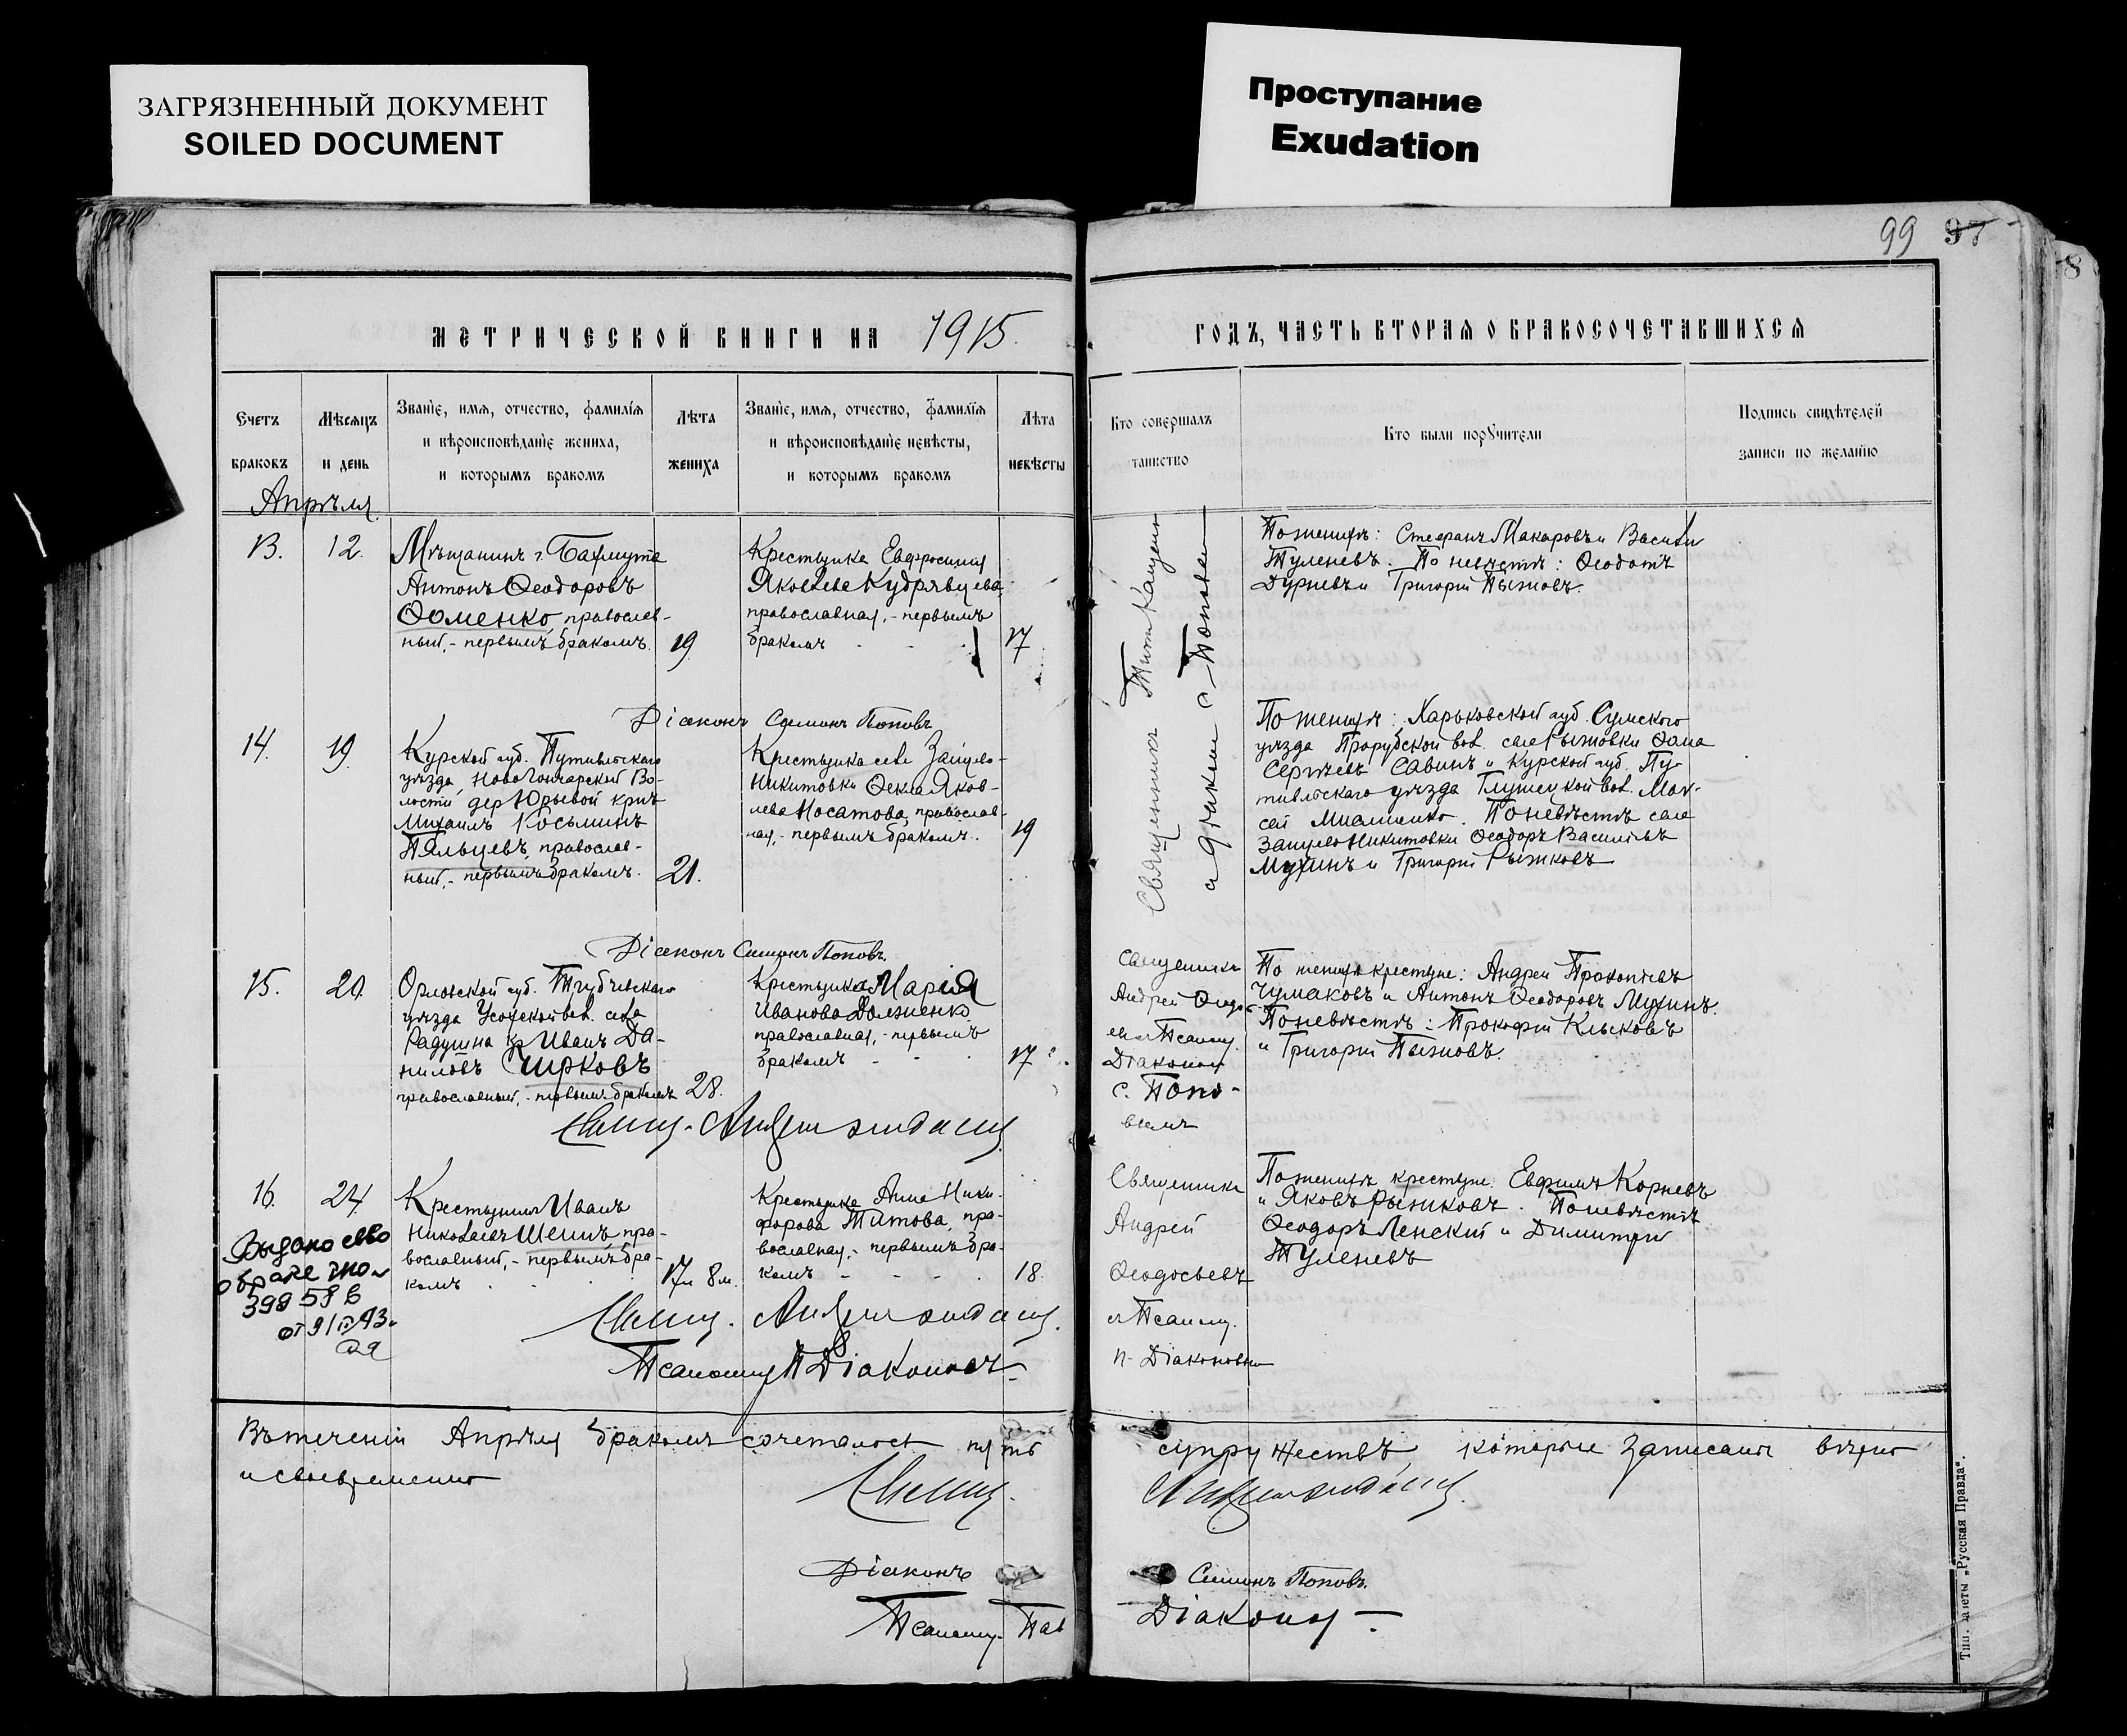 ЗАГРЯЗНЕННЫЙ ДОКУМЕНТ
SOILED DOCUMENT
Проступание
Exudation
99 97
8
МЕТРИЧЕСКОЙ КНИГИ НА 1915.
ГОДЪ, ЧАСТЬ ВТОРАЯ О БРАКОСОЧЕТАВШИХСЯ
Счетъ
браковъ
Мѣсяцъ
и день
Званіе, имя, отчество, фамилія
и вѣроисповѣданіе жениха,
и которымъ бракомъ
Лѣта
жениха
Званіе, имя, отчество, фамилія
и вѣроисповѣданіе невѣсты,
и которымъ бракомъ
Лѣта
невѣсты
Кто совершалъ
таинство
Кто были поручители
Подпись свидѣтелей
записи по желанію
Апрѣля
13.
12.
Мѣщанинъ г. Бахмута
Антонъ Ѳеодоровъ
Ѳоменко, православ-
ный,- первымъ бракомъ.
19
Крестьянка Евфросинія
Яковлева Кудрявцева
православная,- первымъ
бракомъ
17
Священникъ Титъ
и діаконъ С. Поповъ
По женихѣ: Стефанъ Макаровъ и Василій
Туленевъ. По невѣстѣ: Ѳеодотъ
Дурневъ и Григорій Пыжовъ.
Діаконъ Симонъ Поповъ
14.
19.
Курской губ. Путивльскаго
уѣзда, Новогончарской Во-
лости, дер Юрьевой кр-нъ
Михаилъ Косьминъ
Пяльцевъ, православ-
ный,- первымъ бракомъ.
21.
Крестьянка села Зайцево-
Никитовки Ѳекла Яков-
лева Носатова, православ-
ная,- первымъ бракомъ.
19
По женихѣ: Харьковской губ. Сумского
уѣзда Прорубской вол. села Рыжовки Ѳома
Сергѣевъ Савинъ и Курской губ. Пу-
тивльскаго уѣзда Глушецкой вол. Мои-
сей. По невѣстѣ села
Зайцево Никитовки Ѳеодоръ Васильевъ
Мухинъ и Григорій Рыжковъ
Діаконъ Симонъ Поповъ.
15.
20.
Орловской губ. Трубчевскаго
уѣзда Усохской вол. села
Радушна кр Иванъ Да-
ниловъ Чирковъ
православный,- первымъ бракомъ
28.
Крестьянка Марія
Иванова Долженко
православная,- первымъ
бракомъ
17
Священникъ
Андрей Ѳеодо-
съ Псалом.
Діаконом
С. Попо-
вымъ
По женихѣ крестьяне: Андрей Прокопіевъ
Чумаковъ и Антонъ Ѳеодоровъ Мухинъ.
По невѣстѣ: Прокофій Клысковъ
и Григорій Пыжовъ.
Свящ. Андрей
16.
24
Крестьянинъ Иванъ
Николаевъ Шеинъ, пра-
вославный,- первымъ бра-
комъ
17 л 8 м.
Крестьянка Анна Ники-
форова Титова, пра-
вославная,- первымъ бра-
комъ
18.
Выдано св-во
о браке
39858
Священникъ
Андрей
Ѳеодосьевъ
съ Псалом.
П. Діаконовым
По женихѣ крестьяне. Евфимъ Корневъ
и Яковъ Рыжковъ. По невѣстѣ
Ѳеодоръ Ленскій и Димитрій
Туленевъ
Свящ. Андрей
Псаломщ П Діаконовъ
Въ теченіи Апрѣля бракомъ сочеталось пять супружествъ, которые записаны вѣрно
и своевременно
Свящ.
Діаконъ Симонъ Поповъ.
Псаломщ. Пав Діаконов
Тип. газеты „Русская Правда“.